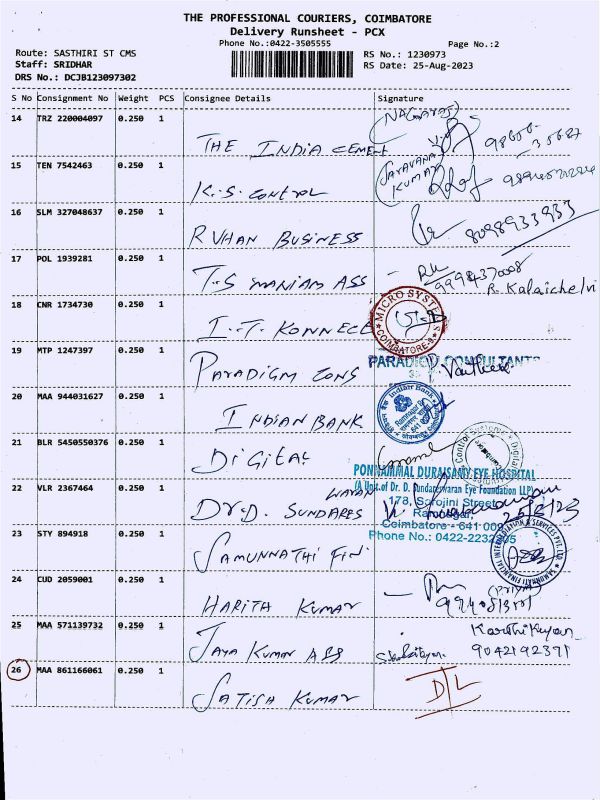 THE PROFESSIONAL COURIERS, COIMBATORE
Delivery Runsheet - PCX
Phone No.:0422-3505555
Page No.:2
Route: SASTHIRI ST CMS
RS No.: 1230973
Staff: SRIDHAR
RS Date: 25-Aug-2023
DRS No.: DCJB123097302
S No Consignment No Weight PCS Consignee Details Signature
14 TRZ 220004097 0.250 1 THE INDIA CEMENT (NAGARAJ)
15 TEN 7542463 0.250 1 K.S. CONTROL SARAVANA KUMAR
16 SLM 327048637 0.250 1 R VHAN BUSINESS 8098933933
17 POL 1939281 0.250 1 T.S MANIAM ASS R. Kalaichelvi
18 CNR 1734730 0.250 1 I.T. KONNECE MICRO SYSTEMS COIMBATORE-9
19 MTP 1247397 0.250 1 PARADIGM CONS PARADIGM CONSULTANTS
20 MAA 944031627 0.250 1 INDIAN BANK Indian Bank
21 BLR 5450550376 0.250 1 DIGITAL Digital Control Systems Coimbatore
PONNAMMAL DURAISAMY EYE HOSPITAL
(A Unit of Dr. D. Sundareswaran Eye Foundation LLP)
22 VLR 2367464 0.250 1 Dr.D. SUNDARES WARAN 178, Sarojini Street
Ramnagar,
Coimbatore - 641 009
25/8/23
Phone No.: 0422-2232
23 STY 894918 0.250 1 SAMUNNATHI FIN SAMUNNATI FINANCIAL INTERMEDIATION & SERVICES PVT LTD
24 CUD 2059001 0.250 1 HARITH KUMAR (PRIYA)
25 MAA 571139732 0.250 1 JAYA KUMAR ASS Karthikeyan
9042192371
26 MAA 861166061 0.250 1 SATISH KUMAR D/L